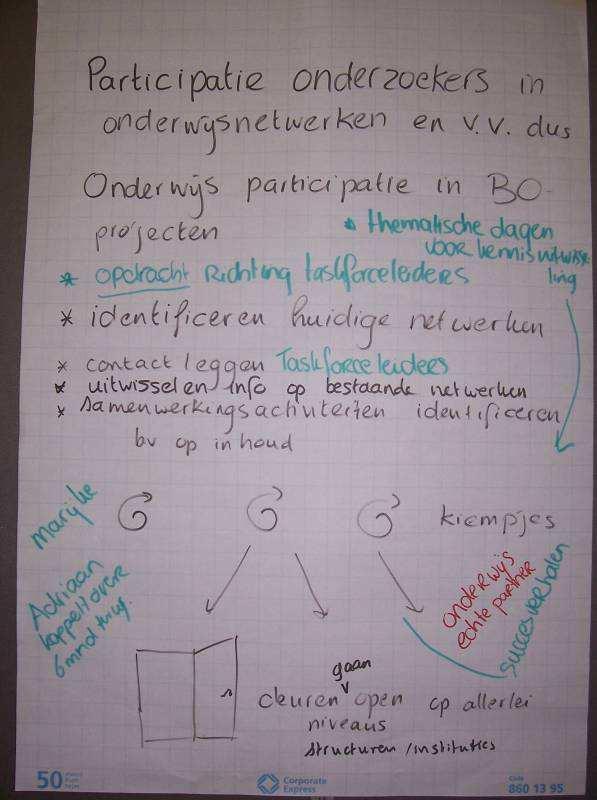 Participatie onderzoekers in
onderwijsnetwerken en v.v. dus
Onderwijs participatie in BO-
projecten
* thematische dagen
voor kennisuitwisse
ling
* opdracht Richting taskforceleiders
* identificeren huidige netwerken
* contact leggen Taskforceleiders
* uitwisselen info op bestaande netwerken
* Samenwerkingsactiviteiten identificeren
bv op inhoud
Marijke
kiempjes
Adriaan
koppelt
6 mnd terug.
onderwijs
echte partner
succesverhalen
gaan
deuren open op allerlei
niveaus
structuren / instituties
50
Corporate
Express
Code
860 13 95